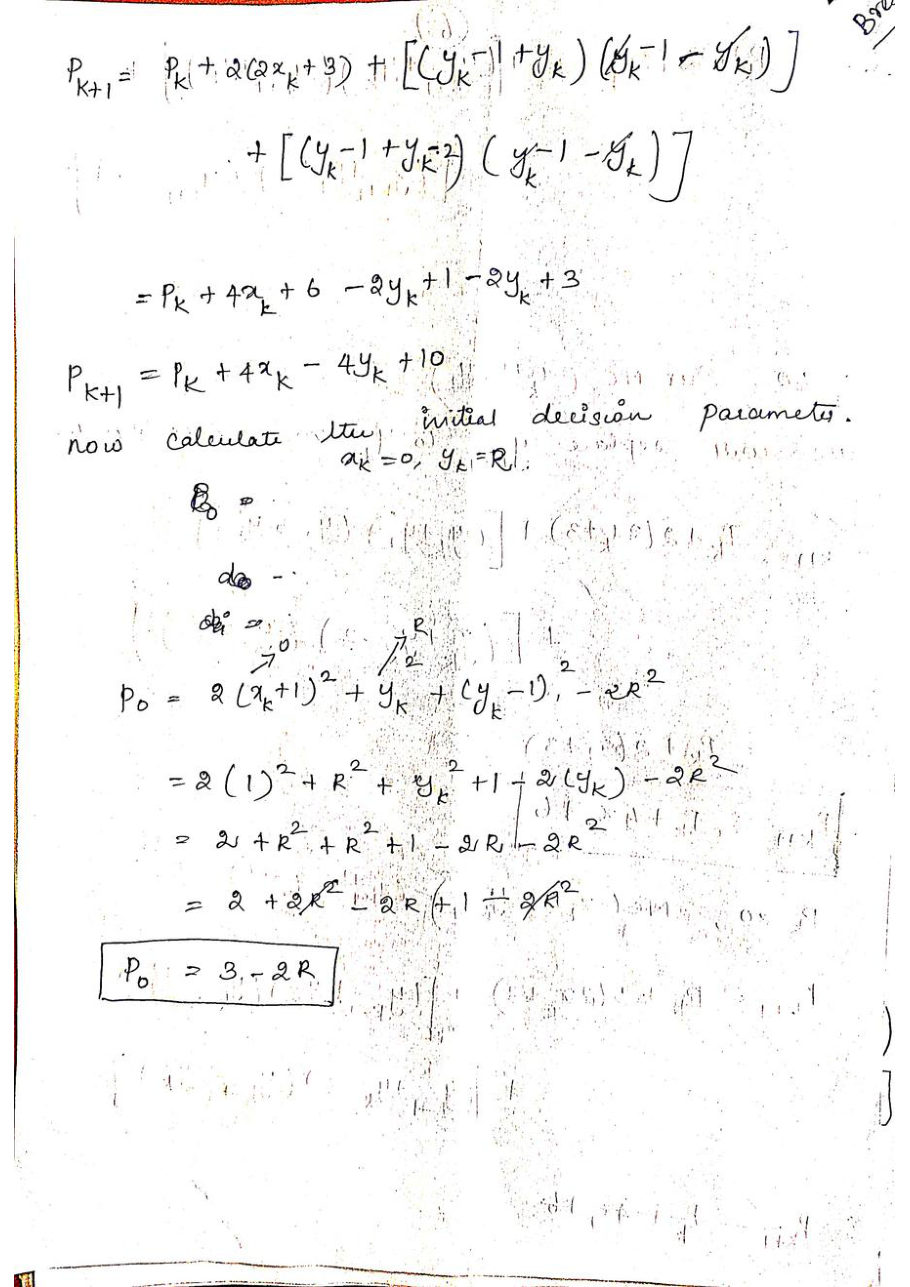 Bre
P_{k+1} = P_k + 2(2x_k + 3) + [(y_k - 1 + y_k) (y_k - 1 - y_k)]
+ [(y_k - 1 + y_k - 2) (y_k - 1 - y_k)]
= P_k + 4x_k + 6 - 2y_k + 1 - 2y_k + 3
P_{k+1} = P_k + 4x_k - 4y_k + 10
now calculate the initial decision parameter.
x_k = 0, y_k = R
P_0 =
0 R
P_0 = 2(x_k + 1)² + y_k² + (y_k - 1)² - 2R²
= 2(1)² + R² + y_k² + 1 - 2(y_k) - 2R²
= 2 + R² + R² + 1 - 2R - 2R²
= 2 + 2R² - 2R + 1 - 2R²
P_0 = 3 - 2R